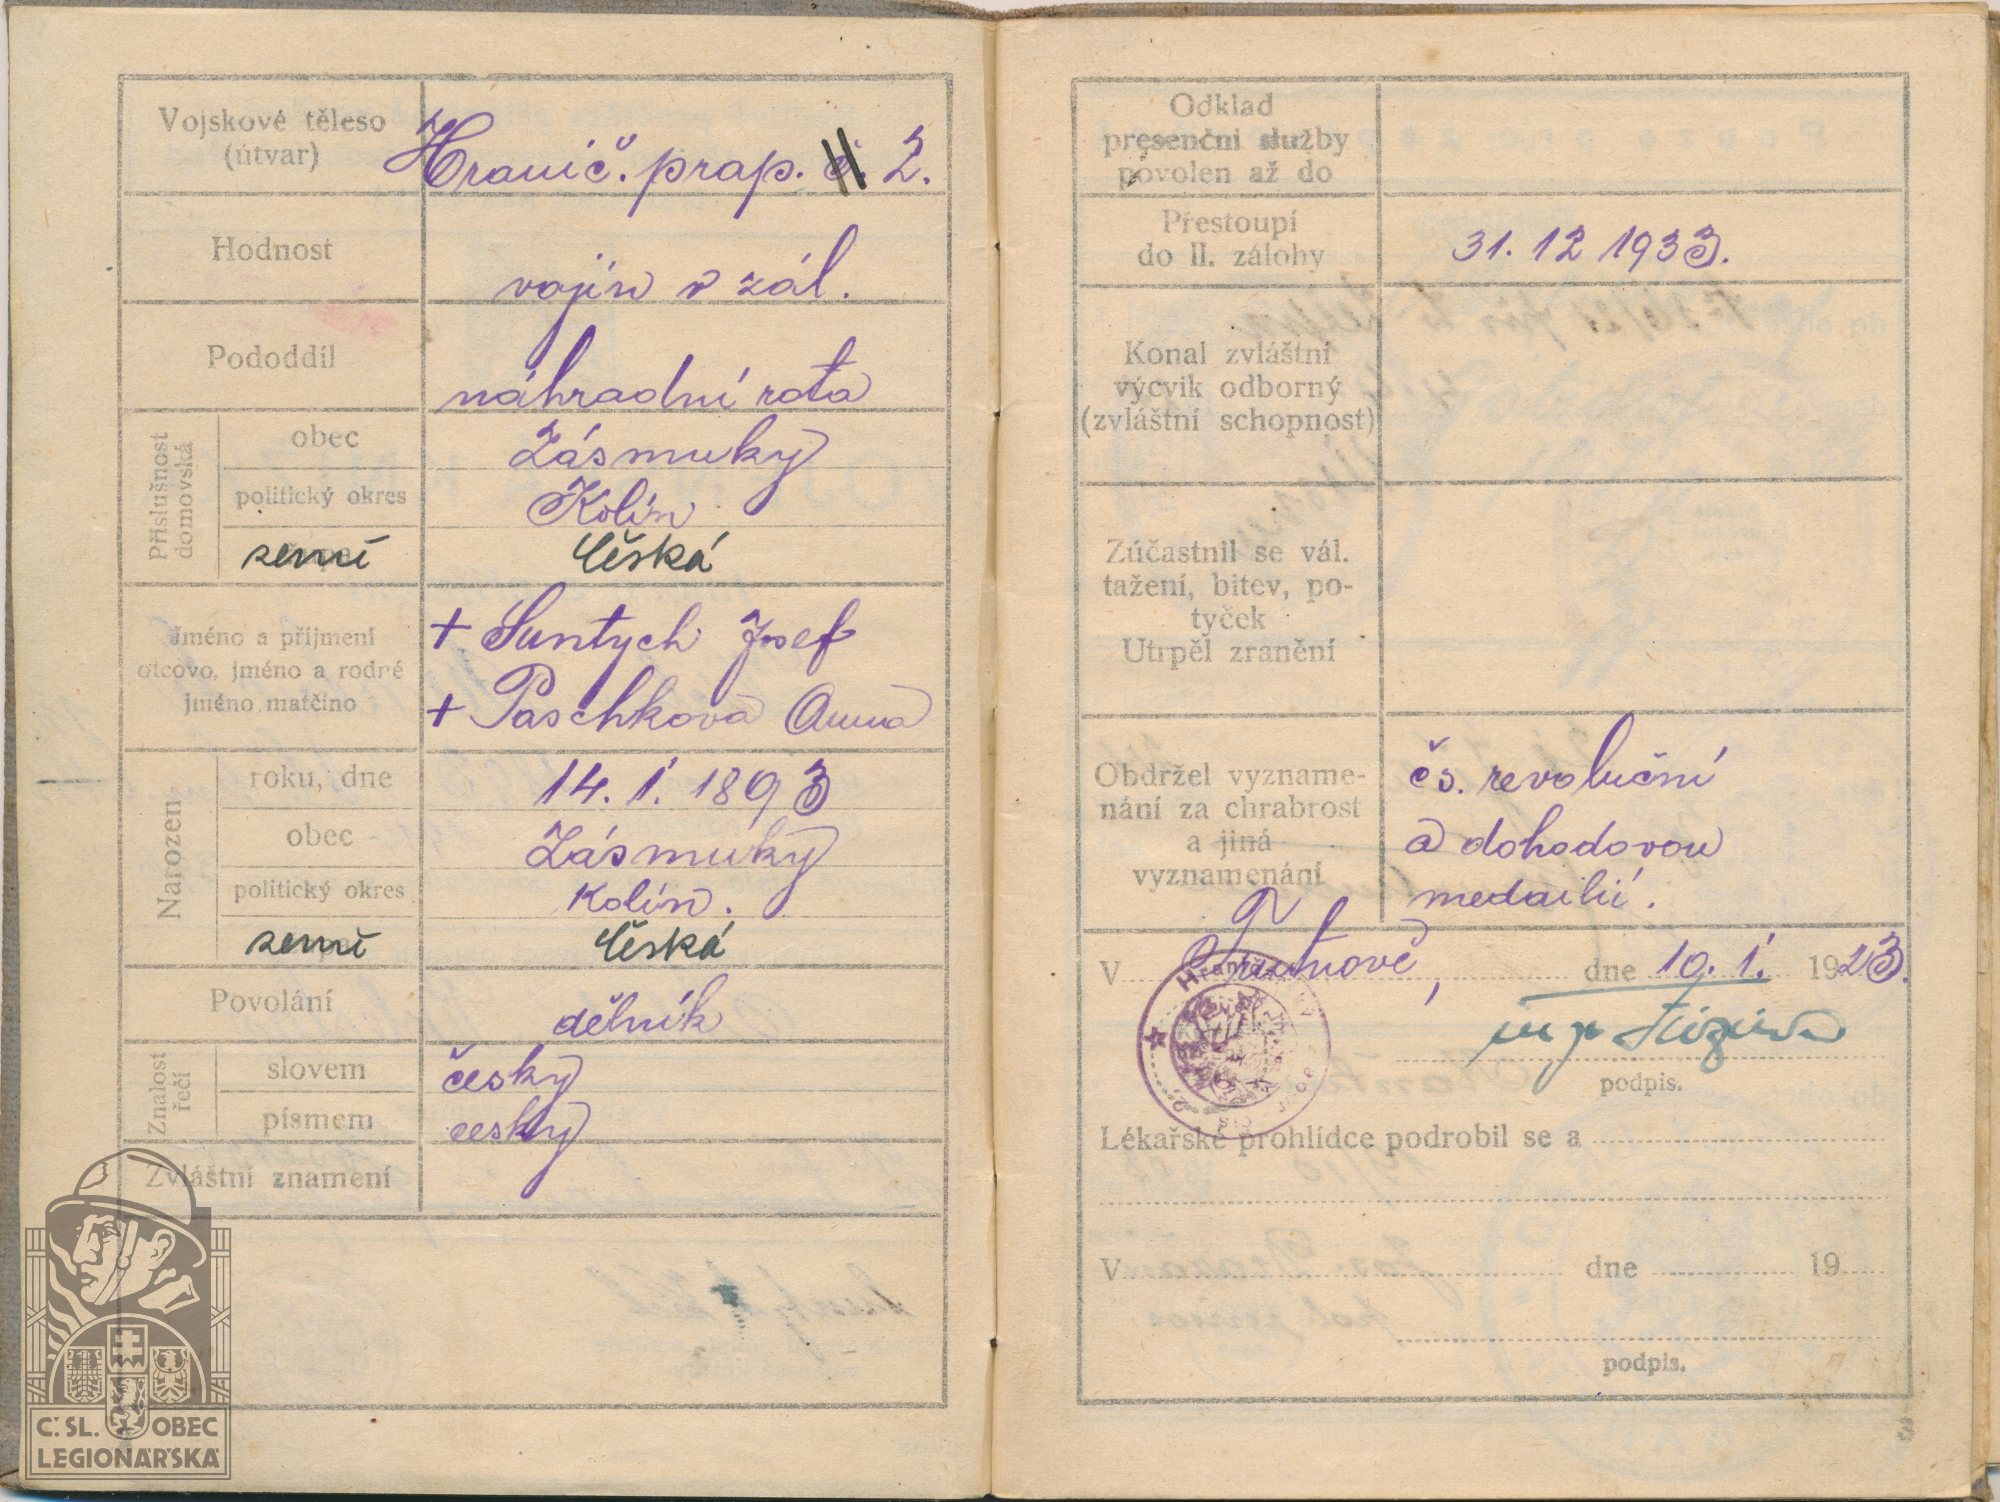 Vojskové těleso
(útvar)
Hranič. prap. 2.
Hodnost
vojín v zál.
Pododdíl
náhradní rota
Příslušnost
domovská
obec
Zásmuky
politický okres
Kolín
země
Česká
Jméno a příjmení
otcovo, jméno a rodné
jméno matčino
+ Suntych Josef
+ Paschková Anna
Narozen
roku, dne
14. 1. 1893
obec
Zásmuky
politický okres
Kolín.
země
Česká
Povolání
dělník
Znalost
řečí
slovem
česky
písmem
česky
Zvláštní znamení
Č. SL. OBEC
LEGIONÁŘSKÁ
Odklad
presenční služby
povolen až do
Přestoupí
do II. zálohy
31. 12 1933.
Konal zvláštní
výcvik odborný
(zvláštní schopnost)
Zúčastnil se vál.
tažení, bitev, po-
tyček
Utrpěl zranění
Obdržel vyzname-
nání za chrabrost
a jiná
vyznamenání
čs. revoluční
a dohodovou
medailii.
V Trutnově, dne 10. 1. 1923.
podpis.
Lékařské prohlídce podrobil se a
V dne 19
podpis.
3